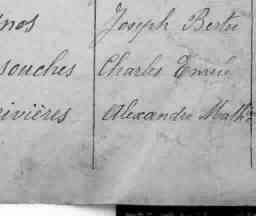 nos Joseph Bertu
souches Charles Emile
rivières Alexandre Math